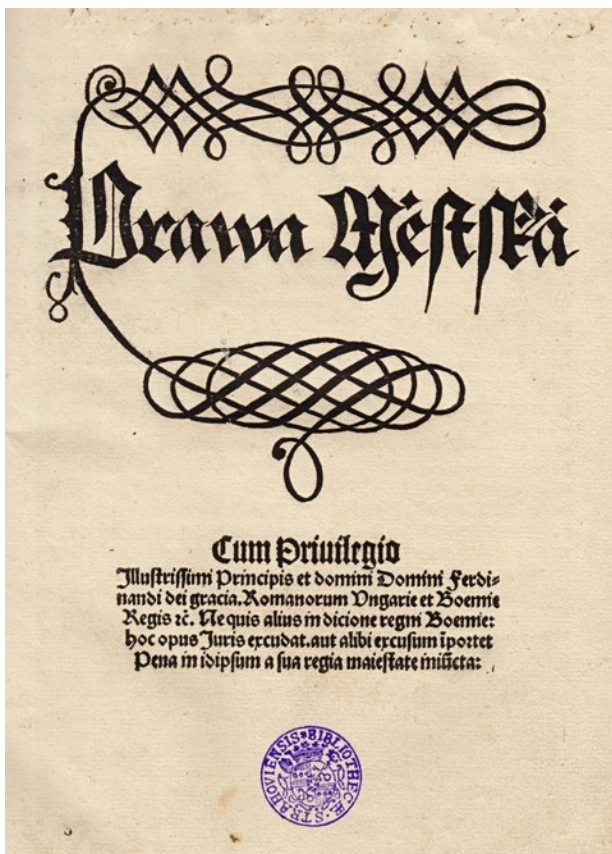 Prawa Městská
Cum Priuilegio
Illustrissimi Principis et domini Domini Ferdi=
nandi dei gracia. Romanorum Vngarie et Boemie
Regis ⁊č. Ne quis alius in dicione regni Boemie:
hoc opus Juris excudat. aut alibi excusum īportet
Pena in idipsum a sua regia maiestate iniūcta:
STRAHOVIENSIS • BIBLIOTHECÆ •